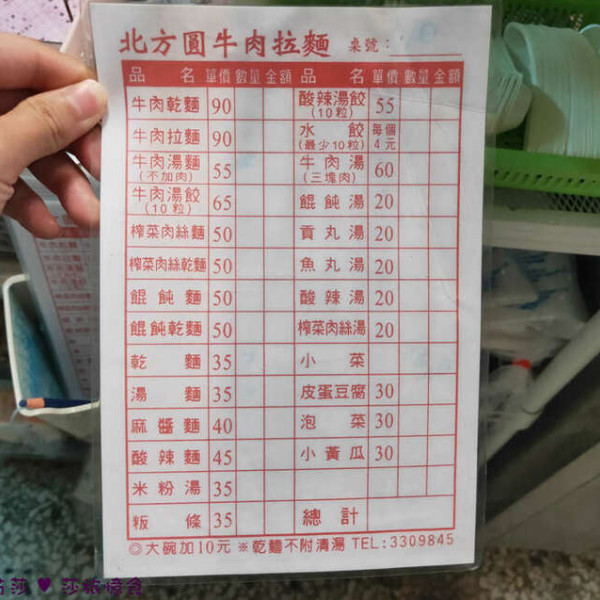 北方圓牛肉拉麵 桌號:
品名 單價 數量 金額 品名 單價 數量 金額
牛肉乾麵 90 酸辣湯餃(10粒) 55
牛肉拉麵 90 水餃(最少10粒) 每個4元
牛肉湯麵(不加肉) 55 牛肉湯(三塊肉) 60
牛肉湯餃(10粒) 65 餛飩湯 20
榨菜肉絲麵 50 貢丸湯 20
榨菜肉絲乾麵 50 魚丸湯 20
餛飩麵 50 酸辣湯 20
餛飩乾麵 50 榨菜肉絲湯 20
乾麵 35 小菜
湯麵 35 皮蛋豆腐 30
麻醬麵 40 泡菜 30
酸辣麵 45 小黃瓜 30
米粉湯 35
粄條 35 總計
◎大碗加10元 ※乾麵不附清湯 TEL:3309845